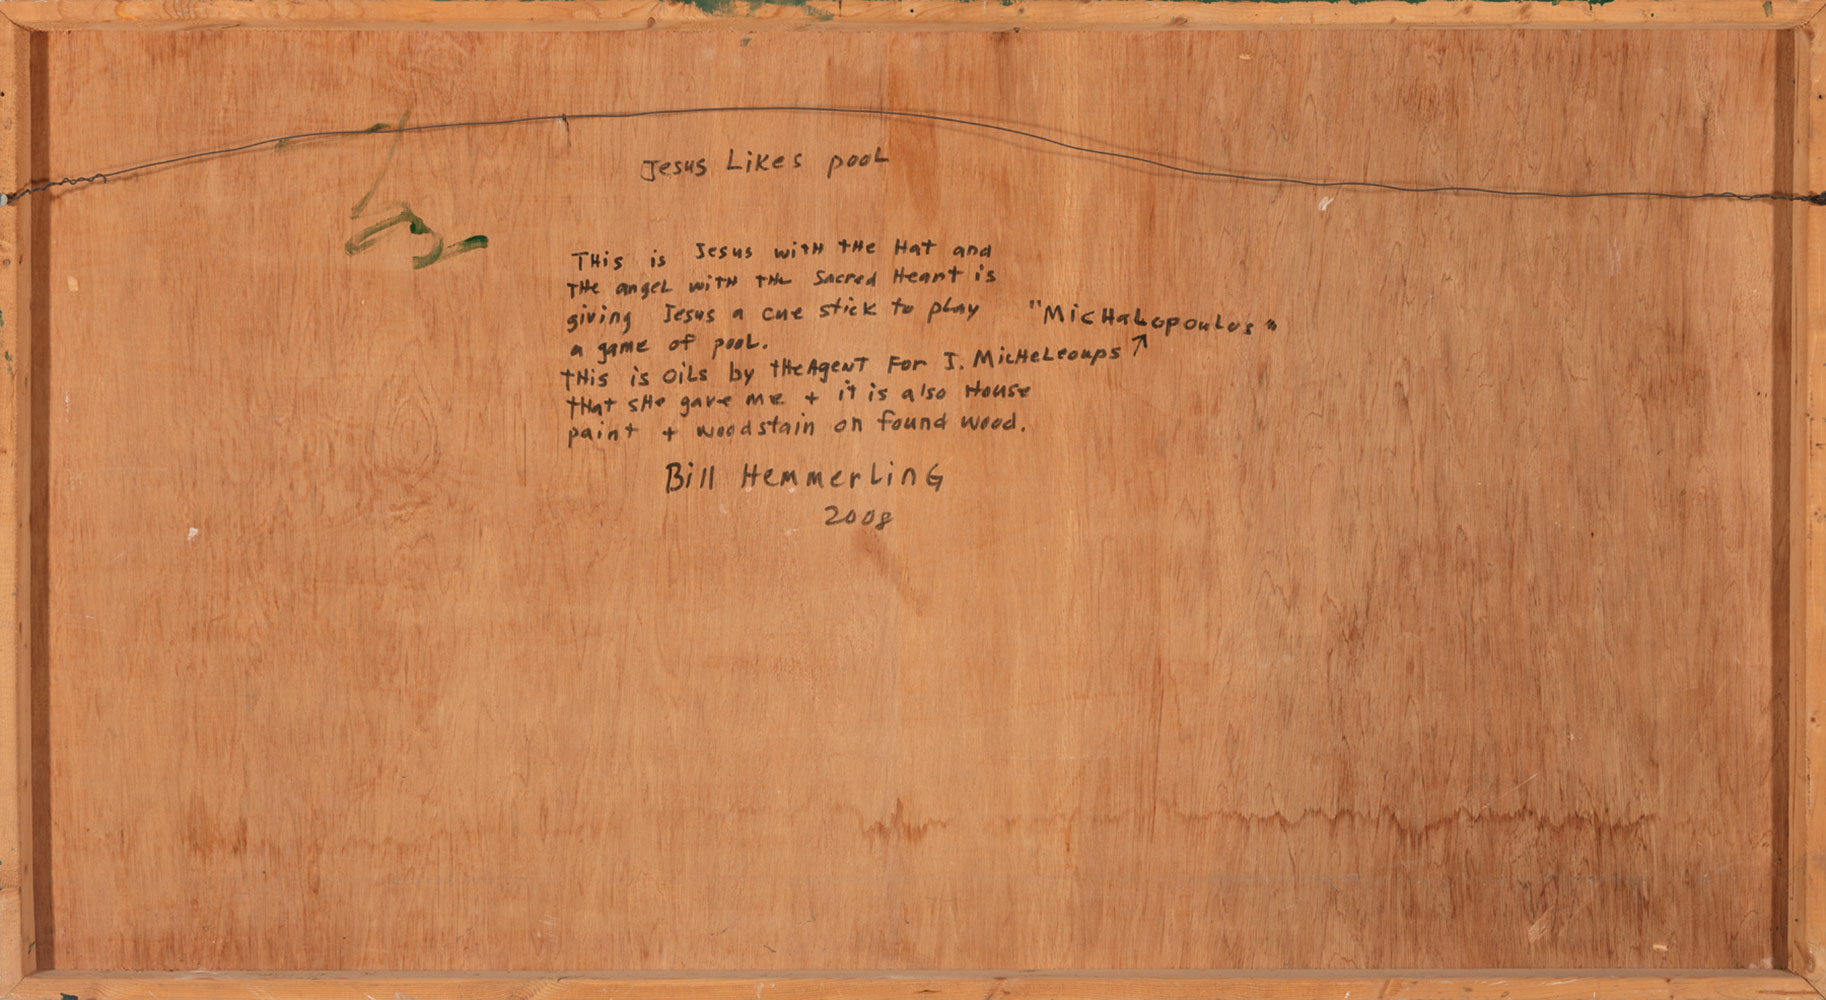 Jesus Likes pool
THis is Jesus with the Hat and
THe angel with the Sacred Heart is
giving Jesus a cue stick to play
"MicHaLopoulos"
a game of pool.
tHis is oils by tHe Agent For J. MicHeLeoups ↑
tHat sHe gave me + it is also House
paint + woodstain on found wood.
Bill HemmerlinG
2008